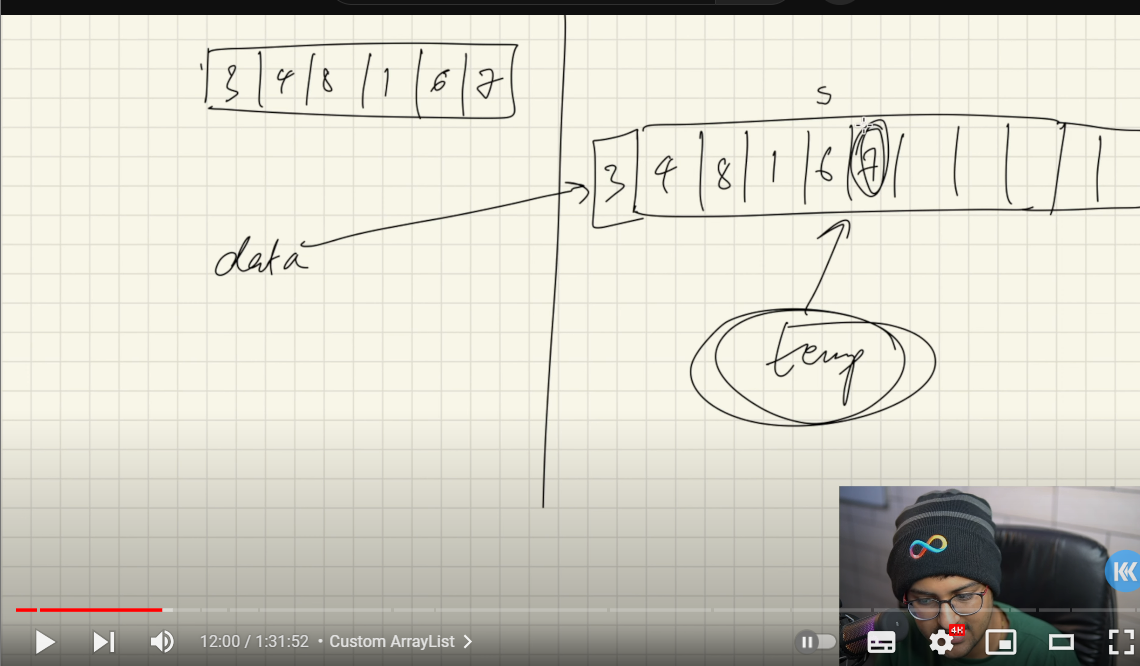 3 4 8 1 6 7
S
3 4 8 1 6 7
data
temp
KK
4K
12:00 / 1:31:52 • Custom ArrayList